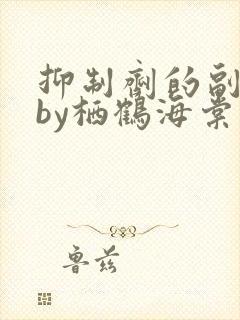 抑制剂的副
by栖鹤海棠
鲁兹